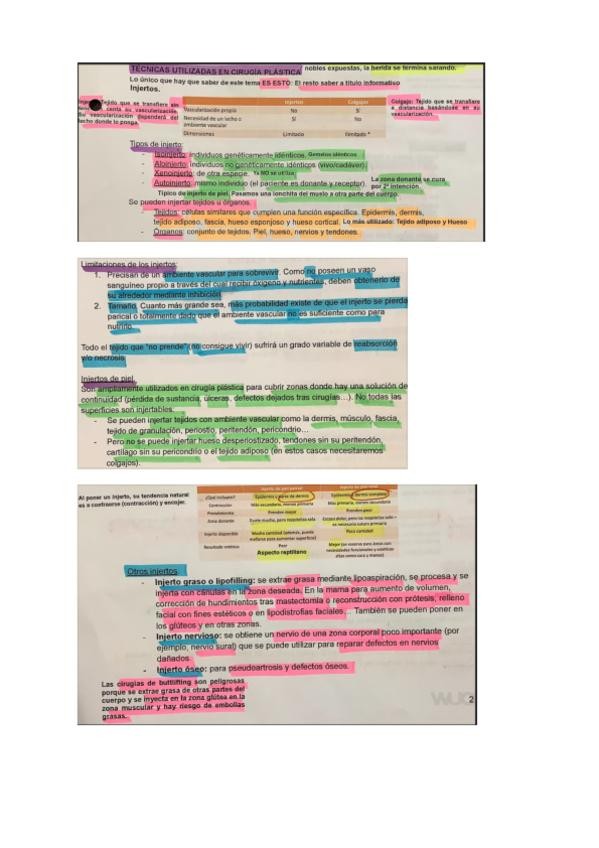 TÉCNICAS UTILIZADAS EN CIRUGÍA PLÁSTICA nobles expuestas, la herida se termina sanando.
Lo único que hay que saber de este tema ES ESTO: El resto saber a título informativo
Injertos.
Tejido que se transfiere sin
su vascularización.
Su vascularización dependerá del
lecho donde lo ponga.
Injertos Colgajos
Vascularización propia No Sí
Necesidad de un lecho o ambiente vascular Sí No
Dimensiones Limitado Ilimitado *
Colgajo: Tejido que se transfiere
a distancia basándose en su
vascularización.
Tipos de injerto:
- Isoinjerto: individuos genéticamente idénticos. Gemelos idénticos
- Aloinjerto: individuos no genéticamente idénticos (vivo/cadáver).
- Xenoinjerto: de otra especie. Ya NO se utiliza
- Autoinjerto: mismo individuo (el paciente es donante y receptor). La zona donante se cura por 2ª intención.
Típico de injerto de piel. Pasamos una lonchita del muslo a otra parte del cuerpo.
Se pueden injertar tejidos u órganos.
- Tejidos: células similares que cumplen una función específica. Epidermis, dermis,
tejido adiposo, fascia, hueso esponjoso y hueso cortical. Lo más utilizado: Tejido adiposo y Hueso
- Órganos: conjunto de tejidos. Piel, hueso, nervios y tendones.
Limitaciones de los injertos:
1. Precisan de un ambiente vascular para sobrevivir. Como no poseen un vaso
sanguíneo propio a través del cual recibir oxígeno y nutrientes, deben obtenerlo de
su alrededor mediante inhibición.
2. Tamaño. Cuanto más grande sea, más probabilidad existe de que el injerto se pierda
parical o totalmente dado que el ambiente vascular no es suficiente como para
nutrirlo.
Todo el tejido que "no prende" (no consigue vivir) sufrirá un grado variable de reabsorción
y/o necrosis.
Injertos de piel.
Son ampliamente utilizados en cirugía plástica para cubrir zonas donde hay una solución de
continuidad (pérdida de sustancia, úlceras, defectos dejados tras cirugías…). No todas las
superficies son injertables:
- Se pueden injertar tejidos con ambiente vascular como la dermis, músculo, fascia,
tejido de granulación, periostio, peritendón, pericondrio…
- Pero no se puede injertar hueso desperiostizado, tendones sin su peritendón,
cartílago sin su pericondrio o el tejido adiposo (en estos casos necesitaremos
colgajos).
Al poner un injerto, su tendencia natural
es a contraerse (contracción) y encojer.
¿Qué incluyen? Epidermis y parte de dermis Epidermis y dermis completa
Contracción Más secundaria, menos primaria Más primaria, menos secundaria
Prendimiento Prenden mejor Prenden peor
Zona donante
Injerto disponible Mucha cantidad Poca cantidad
Resultado estético Peor
Aspecto reptiliano
Otros injertos:
- Injerto graso o lipofilling: se extrae grasa mediante lipoaspiración, se procesa y se
injerta con cánulas en la zona deseada. En la mama para aumento de volumen,
corrección de hundimientos tras mastectomía o reconstrucción con prótesis, relleno
facial con fines estéticos o en lipodistrofias faciales… También se pueden poner en
los glúteos y en otras zonas.
- Injerto nervioso: se obtiene un nervio de una zona corporal poco importante (por
ejemplo, nervio sural) que se puede utilizar para reparar defectos en nervios
dañados.
- Injerto óseo: para pseudoartrosis y defectos óseos.
Las cirugías de buttlifting son peligrosas
porque se extrae grasa de otras partes del
cuerpo y se inyecta en la zona glútea en la
zona muscular y hay riesgo de embolias
grasas.
2